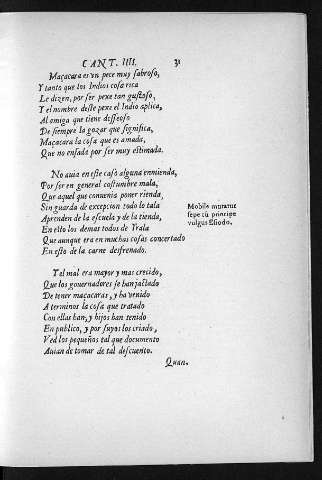 CANT. IIII. 31
Maçacara es vn pece muy sabroso,
Y tanto que los Indios cosa rica
Le dizen, por ser pexe tan gustoso,
Y el nombre deste pexe el Indio aplica,
Al amiga que tiene desseoso
De siempre la gozar que significa,
Maçacara la cosa que es amada,
Que no enfada por ser muy estimada.
No auia en este caso alguna enmienda,
Por ser en general costumbre mala,
Que aquel que conuenia poner rienda,
Sin guarda de excepcion todo lo tala
Aprenden de la escuela y de la tienda,
En esto los demas todos de Yrala
Que aunque era en muchas cosas concertado
En esto de la carne desfrenado.
Mobile mutatur
sepe cũ principe
vulgus Esiodo.
Y el mal era mayor y mas crecido,
Que los gouernadores se han jactado
De tener maçacaras, y ha venido
A terminos la cosa que tratado
Con ellas han, y hijos han tenido
En publico, y por suyos los criado,
Ved los pequeños tal que documento
Auian de tomar de tal descuento.
Quan.